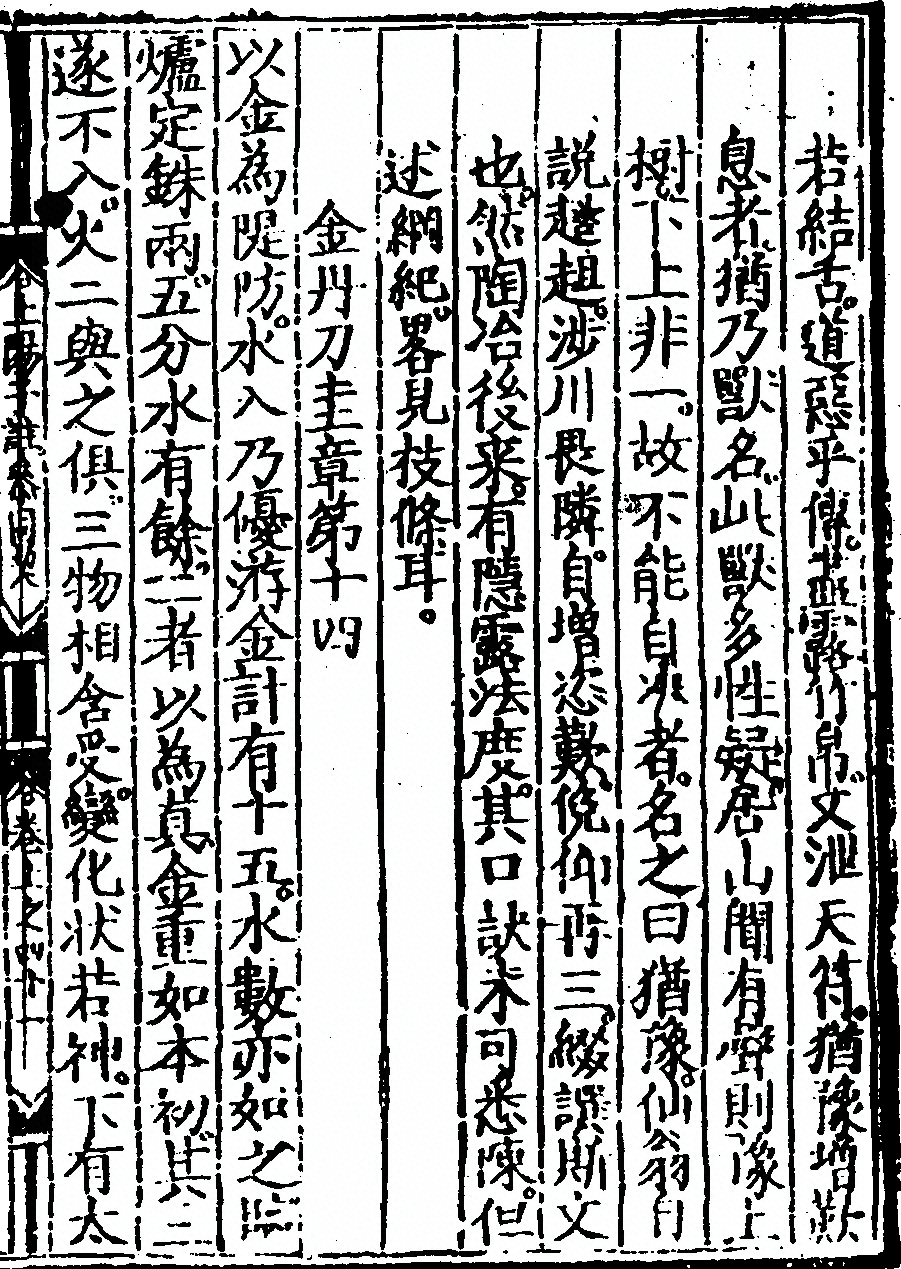 若結舌道惡乎傳無露竹帛文泄天符猶豫增歎
息者猶乃獸名此獸多性疑居山聞有聲則豫上
樹下上非一故不能自決者名之曰猶豫仙翁自
說趑趄涉川畏隣自增恣歎俛仰再三綴譔斯文
也然陶冶後来有隱露法度其口訣未可悉陳但
述綱紀畧見枝條耳
金丹刀圭章第十四
以金為隄防水入乃優游金計有十五水數亦如之臨
爐定銖兩五分水有餘二者以為真金重如本初其三
遂不入火二與之俱三物相含受變化狀若神下有太
上陽子註參同契 卷上之四十一